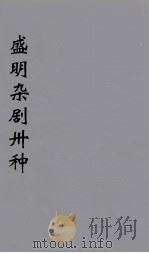 盛明杂剧卅种
研狗
mtoou.info